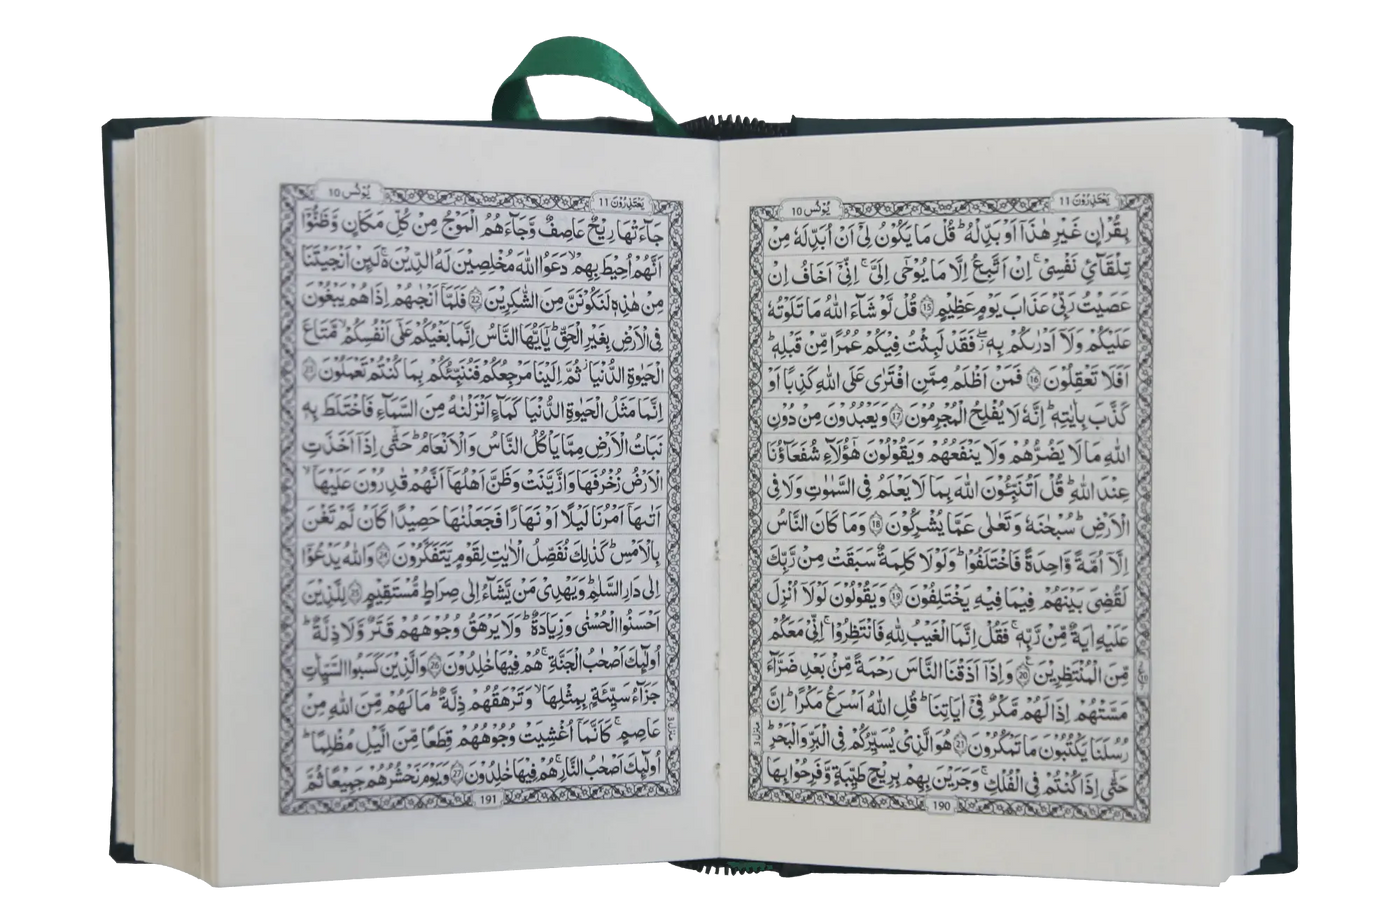 يَعْتَذِرُوْنَ 11
يُوْنُس 10
بِقُرْاٰنٍ غَيْرِ هٰذَآ اَوْ بَدِّلْهُ ؕ قُلْ مَا يَكُوْنُ لِيْۤ اَنْ اُبَدِّلَهٗ مِنْ
تِلْقَآئِ نَفْسِيْ ۚ اِنْ اَتَّبِعُ اِلَّا مَا يُوْحٰۤى اِلَيَّ ۚ اِنِّيْۤ اَخَافُ اِنْ
عَصَيْتُ رَبِّيْ عَذَابَ يَوْمٍ عَظِيْمٍ 15 قُلْ لَّوْ شَآءَ اللّٰهُ مَا تَلَوْتُهٗ
عَلَيْكُمْ وَلَاۤ اَدْرٰىكُمْ بِهٖ ۖ فَقَدْ لَبِثْتُ فِيْكُمْ عُمُرًا مِّنْ قَبْلِهٖ ؕ
اَفَلَا تَعْقِلُوْنَ 16 فَمَنْ اَظْلَمُ مِمَّنِ افْتَرٰى عَلَى اللّٰهِ كَذِبًا اَوْ
كَذَّبَ بِاٰيٰتِهٖ ؕ اِنَّهٗ لَا يُفْلِحُ الْمُجْرِمُوْنَ 17 وَيَعْبُدُوْنَ مِنْ دُوْنِ
اللّٰهِ مَا لَا يَضُرُّهُمْ وَلَا يَنْفَعُهُمْ وَيَقُوْلُوْنَ هٰۤؤُلَآءِ شُفَعَآؤُنَا
عِنْدَ اللّٰهِ ؕ قُلْ اَتُنَبِّئُوْنَ اللّٰهَ بِمَا لَا يَعْلَمُ فِي السَّمٰوٰتِ وَلَا فِي
الْاَرْضِ ؕ سُبْحٰنَهٗ وَتَعٰلٰى عَمَّا يُشْرِكُوْنَ 18 وَمَا كَانَ النَّاسُ
اِلَّاۤ اُمَّةً وَّاحِدَةً فَاخْتَلَفُوْا ؕ وَلَوْلَا كَلِمَةٌ سَبَقَتْ مِنْ رَّبِّكَ
لَقُضِيَ بَيْنَهُمْ فِيْمَا فِيْهِ يَخْتَلِفُوْنَ 19 وَيَقُوْلُوْنَ لَوْلَاۤ اُنْزِلَ
عَلَيْهِ اٰيَةٌ مِّنْ رَّبِّهٖ ۚ فَقُلْ اِنَّمَا الْغَيْبُ لِلّٰهِ فَانْتَظِرُوْا ۚ اِنِّيْ مَعَكُمْ
مِّنَ الْمُنْتَظِرِيْنَ 20 وَاِذَاۤ اَذَقْنَا النَّاسَ رَحْمَةً مِّنْۢ بَعْدِ ضَرَّآءَ
مَسَّتْهُمْ اِذَا لَهُمْ مَّكْرٌ فِيْۤ اٰيَاتِنَا ؕ قُلِ اللّٰهُ اَسْرَعُ مَكْرًا ؕ اِنَّ
رُسُلَنَا يَكْتُبُوْنَ مَا تَمْكُرُوْنَ 21 هُوَ الَّذِيْ يُسَيِّرُكُمْ فِي الْبَرِّ وَالْبَحْرِ ؕ
حَتّٰۤى اِذَا كُنْتُمْ فِي الْفُلْكِ ۚ وَجَرَيْنَ بِهِمْ بِرِيْحٍ طَيِّبَةٍ وَّفَرِحُوْا بِهَا
190
يَعْتَذِرُوْنَ 11
يُوْنُس 10
جَآءَتْهَا رِيْحٌ عَاصِفٌ وَّجَآءَهُمُ الْمَوْجُ مِنْ كُلِّ مَكَانٍ وَّظَنُّوْۤا
اَنَّهُمْ اُحِيْطَ بِهِمْ ۙ دَعَوُا اللّٰهَ مُخْلِصِيْنَ لَهُ الدِّيْنَ ۚ لَئِنْ اَنْجَيْتَنَا
مِنْ هٰذِهٖ لَنَكُوْنَنَّ مِنَ الشّٰكِرِيْنَ 22 فَلَمَّاۤ اَنْجٰىهُمْ اِذَا هُمْ يَبْغُوْنَ
فِي الْاَرْضِ بِغَيْرِ الْحَقِّ ؕ يٰۤاَيُّهَا النَّاسُ اِنَّمَا بَغْيُكُمْ عَلٰۤى اَنْفُسِكُمْ ۙ مَّتَاعَ
الْحَيٰوةِ الدُّنْيَا ؗ ثُمَّ اِلَيْنَا مَرْجِعُكُمْ فَنُنَبِّئُكُمْ بِمَا كُنْتُمْ تَعْمَلُوْنَ 23
اِنَّمَا مَثَلُ الْحَيٰوةِ الدُّنْيَا كَمَآءٍ اَنْزَلْنٰهُ مِنَ السَّمَآءِ فَاخْتَلَطَ بِهٖ
نَبَاتُ الْاَرْضِ مِمَّا يَاْكُلُ النَّاسُ وَالْاَنْعَامُ ؕ حَتّٰۤى اِذَاۤ اَخَذَتِ
الْاَرْضُ زُخْرُفَهَا وَازَّيَّنَتْ وَظَنَّ اَهْلُهَاۤ اَنَّهُمْ قٰدِرُوْنَ عَلَيْهَاۤ ۙ
اَتٰىهَاۤ اَمْرُنَا لَيْلًا اَوْ نَهَارًا فَجَعَلْنٰهَا حَصِيْدًا كَاَنْ لَّمْ تَغْنَ
بِالْاَمْسِ ؕ كَذٰلِكَ نُفَصِّلُ الْاٰيٰتِ لِقَوْمٍ يَّتَفَكَّرُوْنَ 24 وَاللّٰهُ يَدْعُوْۤا
اِلٰى دَارِ السَّلٰمِ ؕ وَيَهْدِيْ مَنْ يَّشَآءُ اِلٰى صِرَاطٍ مُّسْتَقِيْمٍ 25 لِلَّذِيْنَ
اَحْسَنُوا الْحُسْنٰى وَزِيَادَةٌ ؕ وَلَا يَرْهَقُ وُجُوْهَهُمْ قَتَرٌ وَّلَا ذِلَّةٌ ؕ
اُولٰٓئِكَ اَصْحٰبُ الْجَنَّةِ ۚ هُمْ فِيْهَا خٰلِدُوْنَ 26 وَالَّذِيْنَ كَسَبُوا السَّيِّاٰتِ
جَزَآءُ سَيِّئَةٍۭ بِمِثْلِهَا ۙ وَتَرْهَقُهُمْ ذِلَّةٌ ؕ مَا لَهُمْ مِّنَ اللّٰهِ مِنْ
عَاصِمٍ ۚ كَاَنَّمَاۤ اُغْشِيَتْ وُجُوْهُهُمْ قِطَعًا مِّنَ الَّيْلِ مُظْلِمًا ؕ
اُولٰٓئِكَ اَصْحٰبُ النَّارِ ۚ هُمْ فِيْهَا خٰلِدُوْنَ 27 وَيَوْمَ نَحْشُرُهُمْ جَمِيْعًا ثُمَّ
191